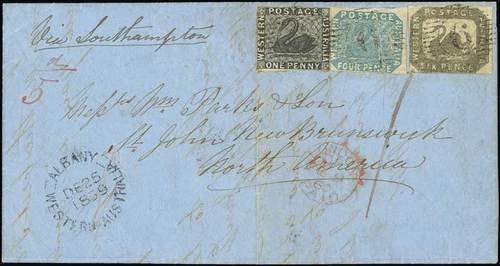 Via Southampton
WESTERN POSTAGE AUSTRALIA ONE PENNY
POSTAGE AUSTRALIA FOUR PENCE
WESTERN POSTAGE SIX PENCE
Messrs Wm Parks & Son
St John New Brunswick
North America
ALBANY
DE 25
1859
WESTERN AUSTRALIA